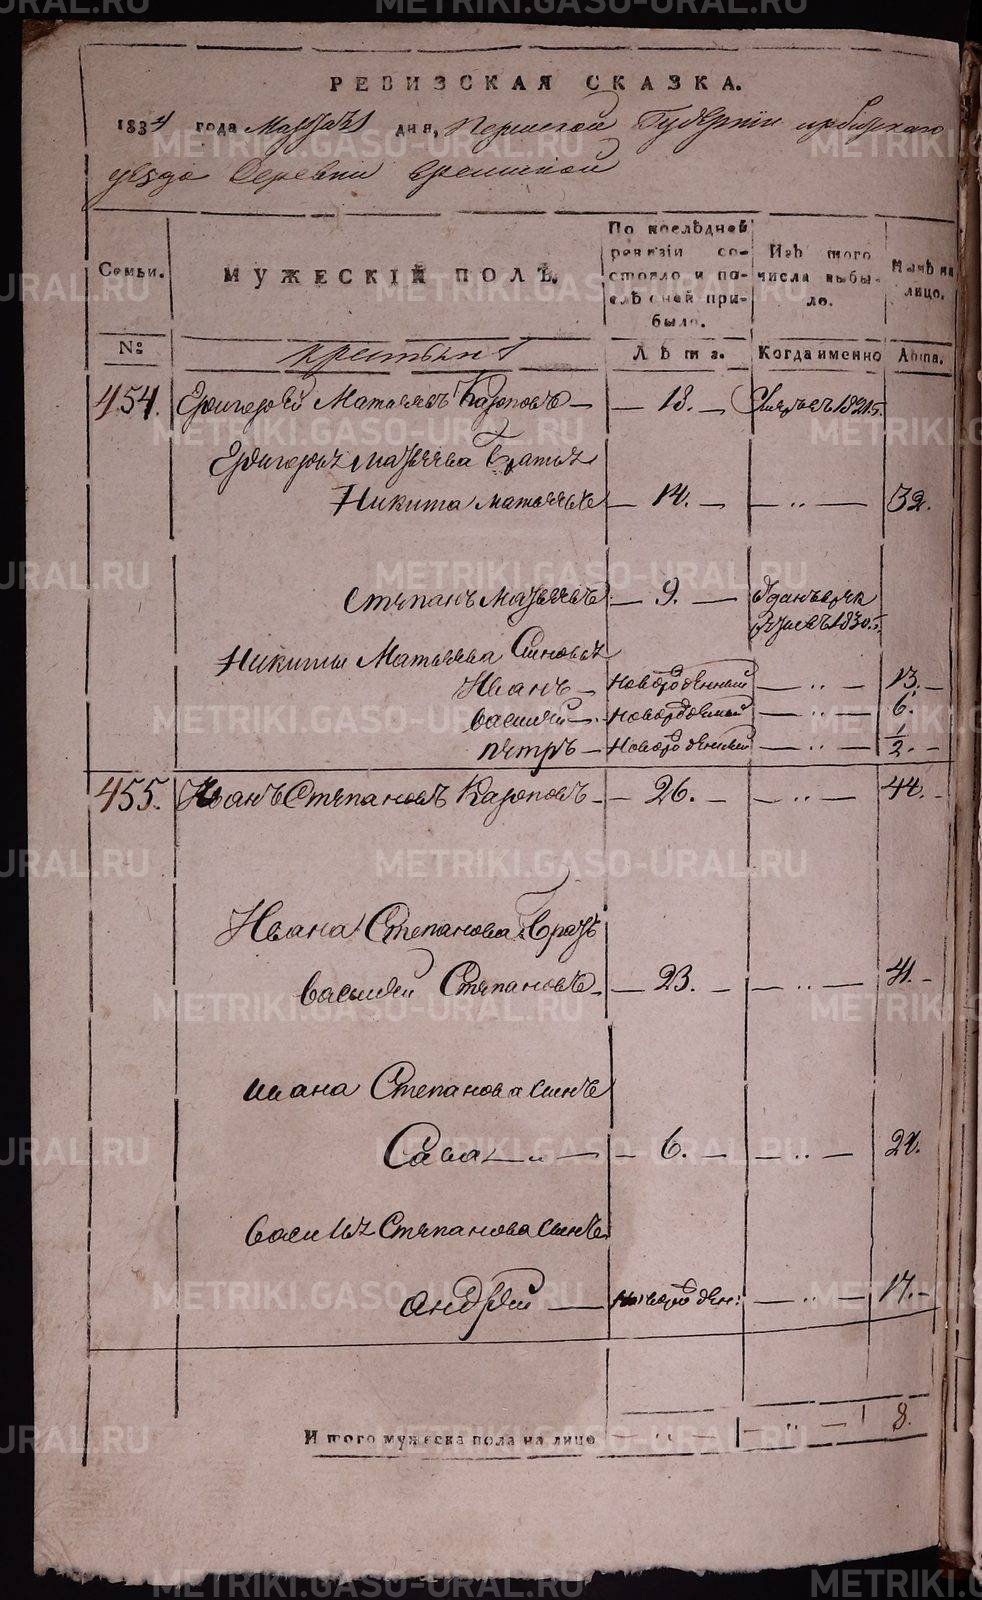 РЕВИЗСКАЯ СКАЗКА.
1834 года Марта 1 дня, Пермской Губернии ирбитскаго
уезда Деревни
Семьи.
МУЖЕСКІЙ ПОЛЪ.
По послѣдней
ревизіи со-
стояло и по-
слѣ оней при-
было.
Изъ того
числа выбы-
ло.
Нынѣ на
лицо.
№
крестьяня
Лѣта.
Когда именно
Лѣта.
454. Григорей Матвеевъ — 18. — 1825.
Григорья Матвеева братья
Никита Матвеевъ — 14. — — „ — 32.
Степанъ Матвеевъ — 9. — Отданъ в
1830.
Никиты Матвеева Сыновья
Иванъ — новорожденный — „ — 13. —
василей — новорожденный — „ — 6. —
петръ — новорожденный — „ — 1/2. —
455. Иванъ Степановъ — 26. — — „ — 44. —
Ивана Степанова братъ
василей Степановъ — 23. — — „ — 41. —
ивана Степанова сынъ
Сава — „ — — 6. — — „ — 24.
василья Степанова сынъ
андрей — новорожден: — „ — 17. —
Итого мужеска пола на лицо — „ — — „ — 8.
METRIKI.GASO-URAL.RU